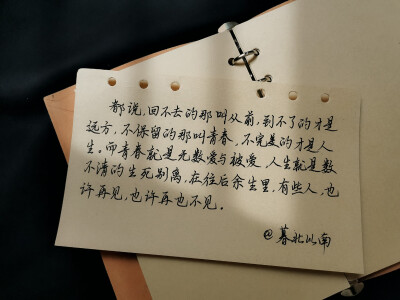 都说，回不去的那叫从前，到不了的才是
远方，不保留的那叫青春，不完美的才是人
生。而青春就是无数爱与被爱，人生就是数
不清的生死别离，在往后余生里，有些人，也
许再见，也许再也不见。
@暮北以南